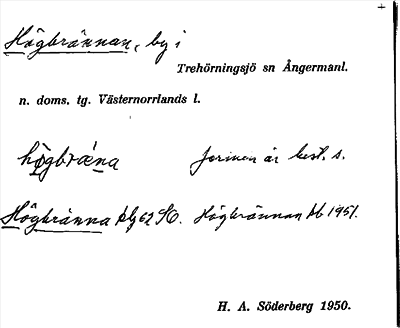 Högbrännan, by i
Trehörningsjö sn Ångermanl.
n. doms. tg. Västernorrlands l.
hö̀gbrǽna formen är best. s.
Högbränna kbg 62 SO. Högbrännan kb 1951.
H. A. Söderberg 1950.